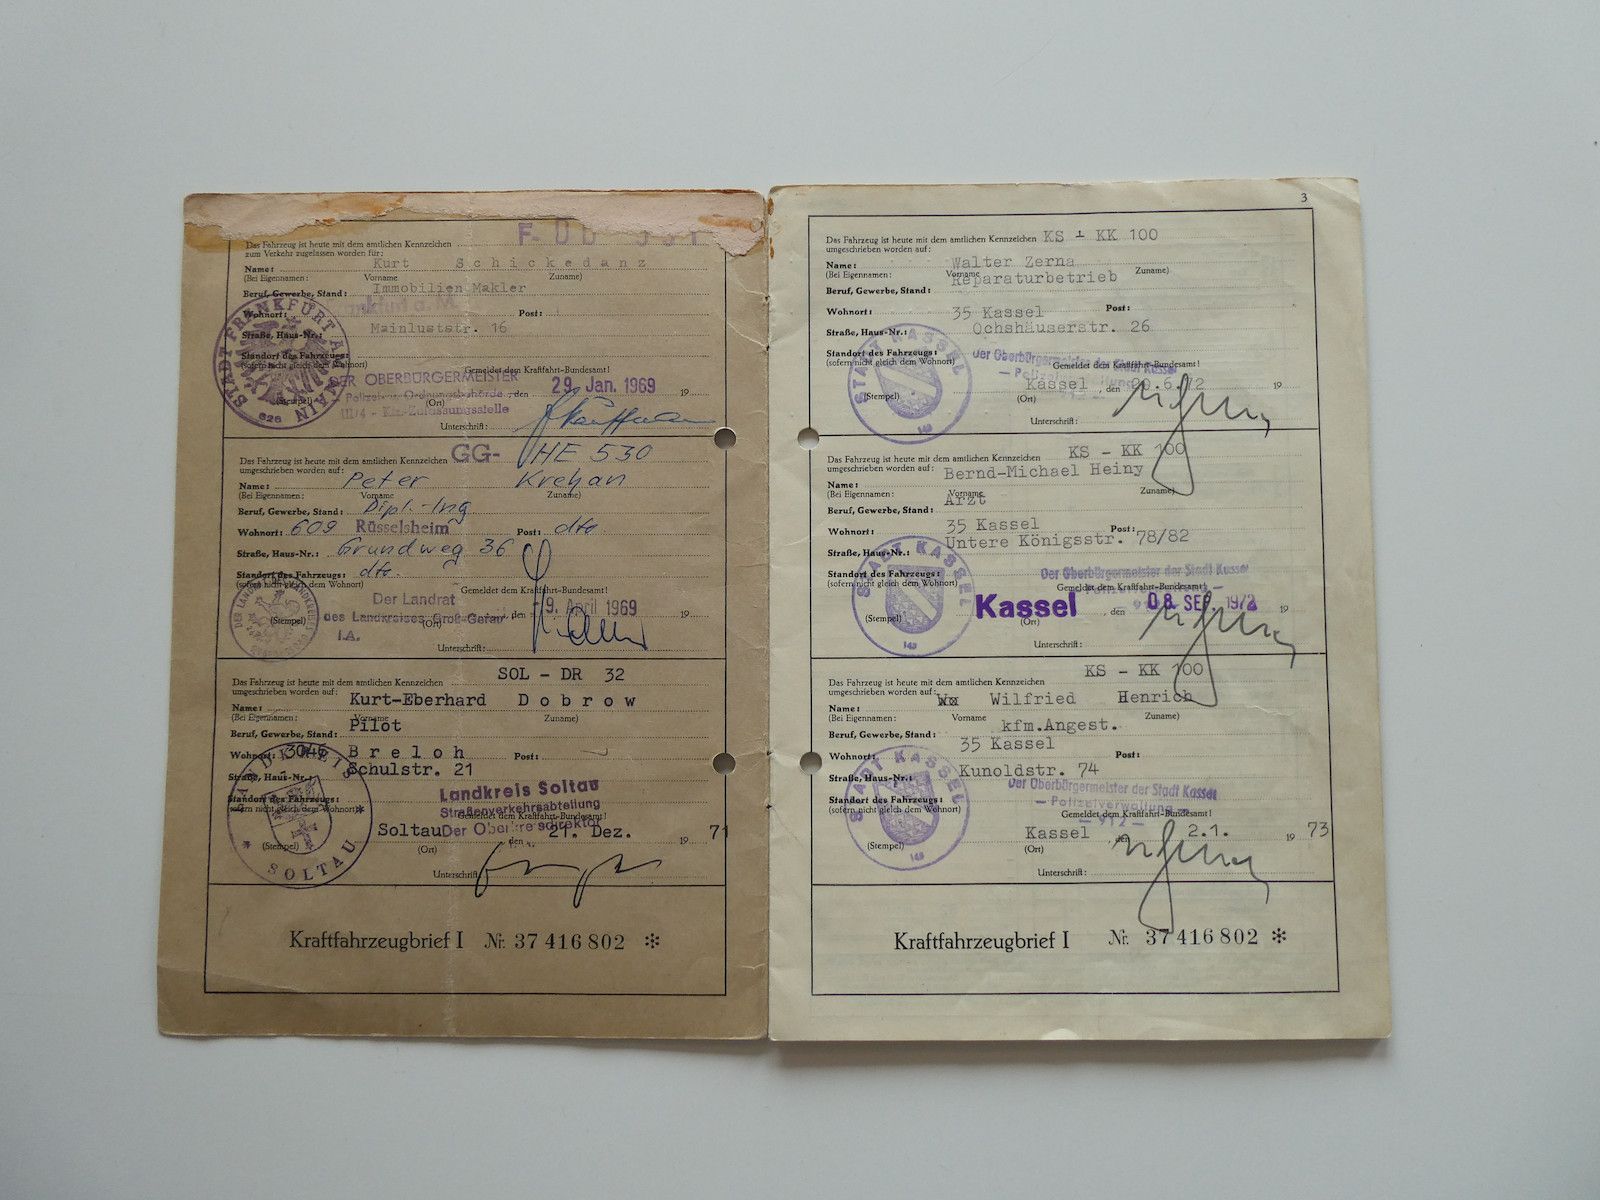 Das Fahrzeug ist heute mit dem amtlichen Kennzeichen F-
zum Verkehr zugelassen worden für:
Name: Kurt Schickedanz
(Bei Eigennamen: Vorname Zuname)
Beruf, Gewerbe, Stand: Immobilien Makler
Wohnort: Frankfurt a. M. Post:
Straße, Haus-Nr.: Mainluststr. 16
Standort des Fahrzeugs:
(sofern nicht gleich dem Wohnort) Gemeldet dem Kraftfahrt-Bundesamt!
STADT FRANKFURT AM MAIN
626
DER OBERBÜRGERMEISTER
29. Jan. 1969 19
(Stempel) (Ort) den
III/4 - Kfz-Zulassungsstelle
Unterschrift:
Das Fahrzeug ist heute mit dem amtlichen Kennzeichen GG- HE 530
umgeschrieben worden auf:
Name: Peter Krehan
(Bei Eigennamen: Vorname Zuname)
Beruf, Gewerbe, Stand: Dipl.-Ing
Wohnort: 609 Rüsselsheim Post: dto
Straße, Haus-Nr.: Grundweg 36
Standort des Fahrzeugs: dto.
(sofern nicht gleich dem Wohnort) Gemeldet dem Kraftfahrt-Bundesamt!
Der Landrat
des Landkreises Groß-Gerau
I.A.
(Stempel) (Ort) den 9. April 1969 19
Unterschrift:
Das Fahrzeug ist heute mit dem amtlichen Kennzeichen SOL - DR 32
umgeschrieben worden auf:
Name: Kurt-Eberhard Dobrow
(Bei Eigennamen: Vorname Zuname)
Beruf, Gewerbe, Stand: Pilot
Wohnort: Breloh Post:
Straße, Haus-Nr.: Schulstr. 21
Standort des Fahrzeugs:
(sofern nicht gleich dem Wohnort) Gemeldet dem Kraftfahrt-Bundesamt!
LANDKREIS * SOLTAU *
Landkreis Soltau
Straßenverkehrsabteilung
Der Oberkreisdirektor
Soltau den 21. Dez. 19 71
(Stempel) (Ort)
Unterschrift:
Kraftfahrzeugbrief I Nr. 37 416 802 *
3
Das Fahrzeug ist heute mit dem amtlichen Kennzeichen KS - KK 100
umgeschrieben worden auf:
Name: Walter Zerna
(Bei Eigennamen: Vorname Zuname)
Beruf, Gewerbe, Stand: Reparaturbetrieb
Wohnort: 35 Kassel Post:
Straße, Haus-Nr.: Ochshäuserstr. 26
Standort des Fahrzeugs:
(sofern nicht gleich dem Wohnort) Gemeldet dem Kraftfahrt-Bundesamt!
STADT KASSEL
143
Der Oberbürgermeister der Stadt Kassel
— Polizeiverwaltung —
Kassel, den 20.6.72 19
(Stempel) (Ort)
Unterschrift:
Das Fahrzeug ist heute mit dem amtlichen Kennzeichen KS - KK 100
umgeschrieben worden auf:
Name: Bernd-Michael Heiny
(Bei Eigennamen: Vorname Zuname)
Beruf, Gewerbe, Stand: Arzt
Wohnort: 35 Kassel Post:
Straße, Haus-Nr.: Untere Königsstr. 78/82
Standort des Fahrzeugs:
(sofern nicht gleich dem Wohnort) Gemeldet dem Kraftfahrt-Bundesamt!
STADT KASSEL
143
Der Oberbürgermeister der Stadt Kassel
Kassel, den 08. SEP. 1972 19
(Stempel) (Ort)
Unterschrift:
Das Fahrzeug ist heute mit dem amtlichen Kennzeichen KS - KK 100
umgeschrieben worden auf:
Name: Wilfried Henrich
(Bei Eigennamen: Vorname Zuname)
Beruf, Gewerbe, Stand: kfm.Angest.
Wohnort: 35 Kassel Post:
Straße, Haus-Nr.: Kunoldstr. 74
Standort des Fahrzeugs:
(sofern nicht gleich dem Wohnort)
STADT KASSEL
143
Der Oberbürgermeister der Stadt Kassel
— Polizeiverwaltung —
Gemeldet dem Kraftfahrt-Bundesamt!
— 912 —
Kassel, den 2.1. 19 73
(Stempel) (Ort)
Unterschrift:
Kraftfahrzeugbrief I Nr. 37 416 802 *